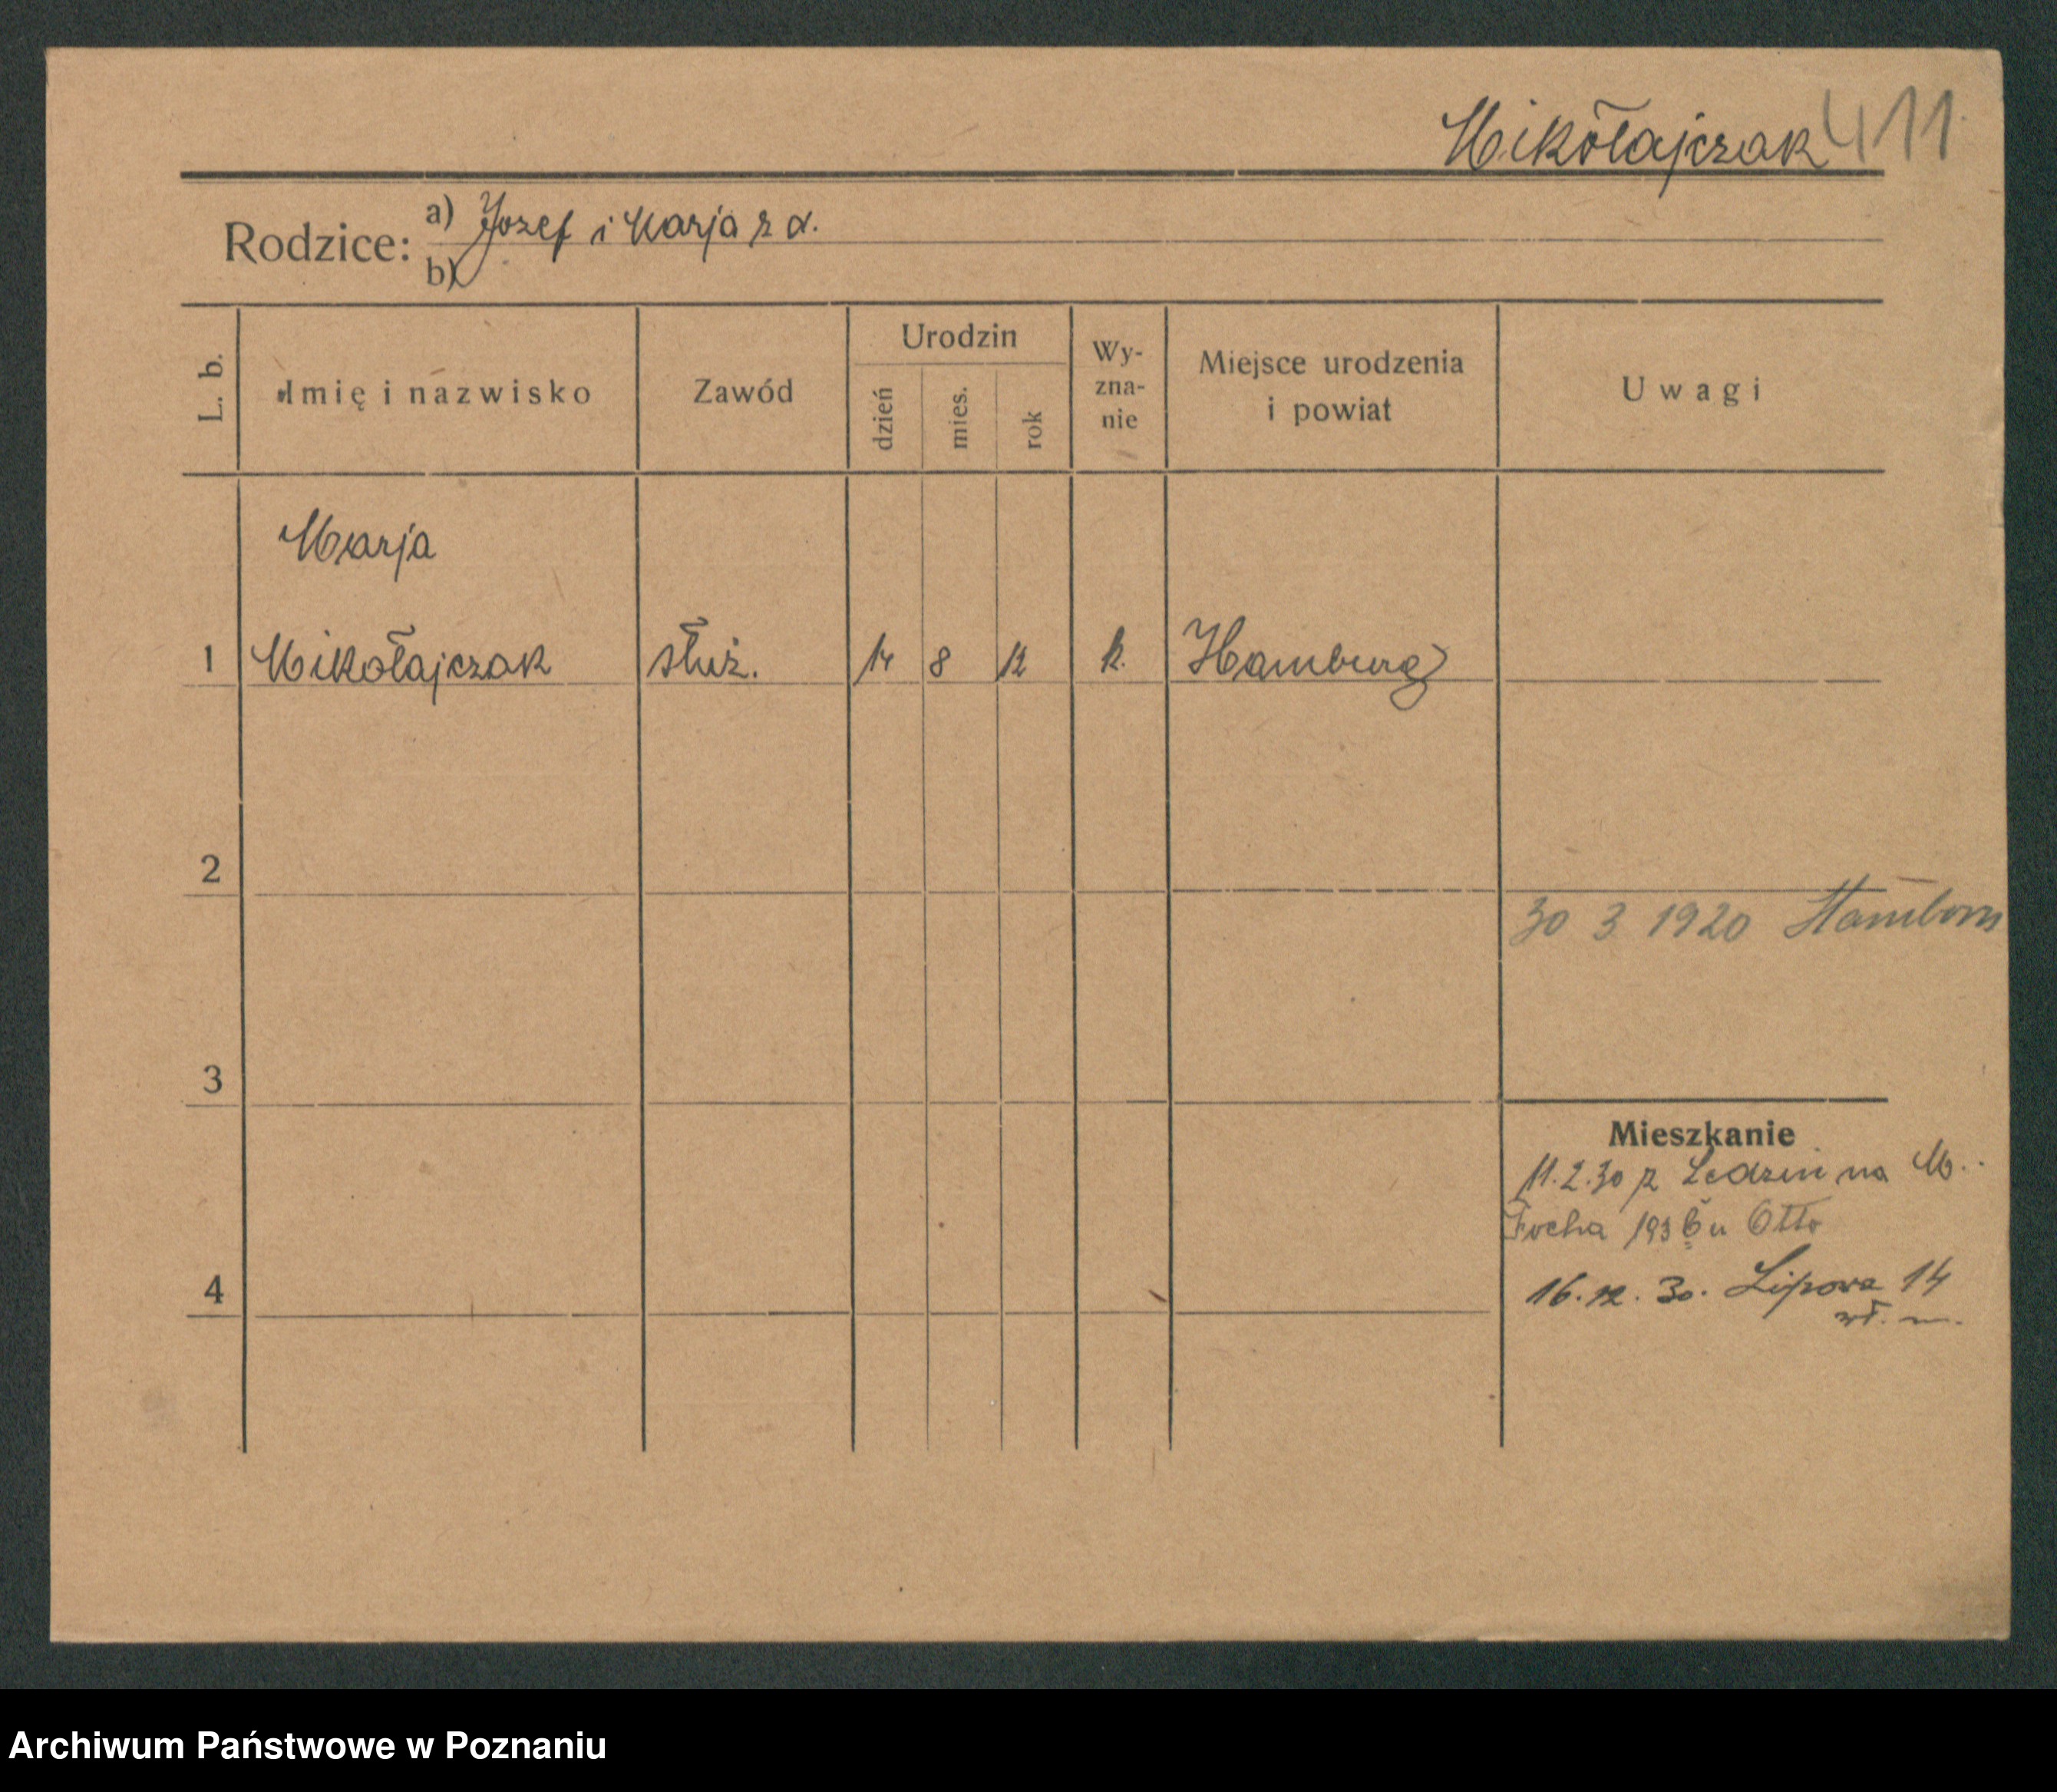 Mikołajczak 411
Rodzice: a) Jozef i Marja z d.
b)
L. b.
Imię i nazwisko
Zawód
Urodzin
dzień
mies.
rok
Wy-
zna-
nie
Miejsce urodzenia
i powiat
Uwagi
Marja
1 Mikołajczak służ. 14 8 12 k. Hamburg
2
30 3 1920 Hamborn
3
Mieszkanie
11.2.30 z na M..
Focha 193 u Otto
4
16.12.30. Lipowa 14
Archiwum Państwowe w Poznaniu